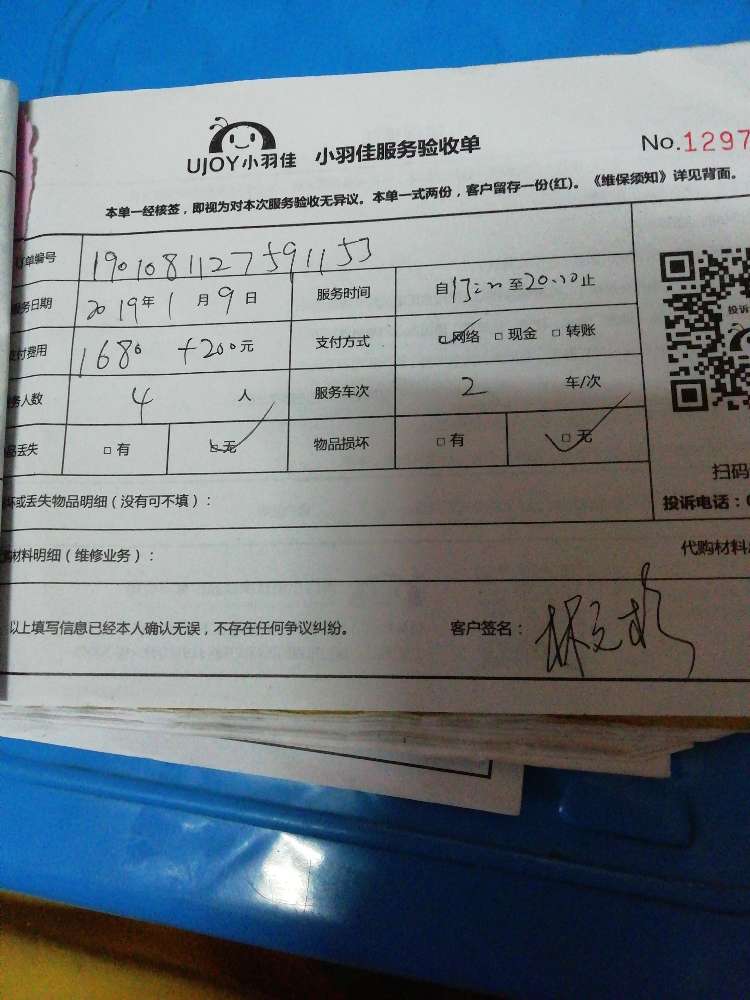 UJOY小羽佳 小羽佳服务验收单 No.1297
本单一经核签，即视为对本次服务验收无异议。本单一式两份，客户留存一份(红)。《维保须知》详见背面。
订单编号 1901081127591153
服务日期 2019年1月9日 服务时间 自13:20至20:20止
支付费用 1680 +200元 支付方式 □网络 □现金 □转账
务人数 4 人 服务车次 2 车/次
品丢失 □有 □无 物品损坏 □有 □无
坏或丢失物品明细（没有可不填）：
购材料明细（维修业务）： 代购材料
以上填写信息已经本人确认无误，不存在任何争议纠纷。 客户签名：
投诉
扫码
投诉电话：0